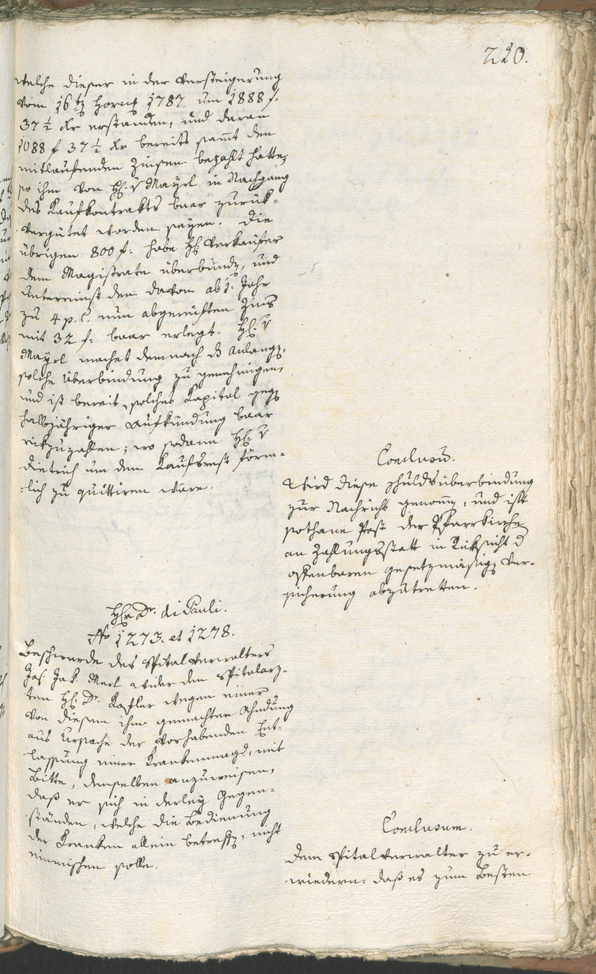 220.
welche dieser in der Versteigerung
vom 16 Horng 1787 um 1888 f.
37 ½ Xr erstanden, und daran
1088 f 37 ½ Xr bereits samt den
mitlaufenden Zinsen bezahlt hatte,
so ihm von H. v Mayrl in Nachgang
des Kaufkontrakts baar zurük-
vergütet worden seyen. Die
übrigen 800 f. habe H. Verkäufer
dem Magistrate überbündt, und
unter den davon ab 1. Jahr
zu 4 p. C. nun abgereiften Zins
mit 32 f. baar erlegt. H. v
Mayrl machet demnach das Anlangen,
solche Überbindung zu genehmigen,
und ist bereit, solches Kapital gegen
halbjähriger Aufkündung baar
rükzuzahlen; wo sodann H. v
Dietrich um den Kaufsrest förm-
lich zu quittiren wäre.
Conclusum.
Wird diese Schuldsüberbindung
zur Nachricht genomen, und ist
sothane Post der Pfarrkirche
an Zahlungsstatt in Rüksicht der
offenbaren gesetzmäsigen Ver-
sicherung abzutretten.
Hr Dr. di Pauli.
No 1273. et 1278.
Beschwerde des Spitalverwalters
Jos. Jak. Merl wider den Spitalarz-
ten H. Dr. Kofler wegen einer
von diesem ihm gemachten Ahndung
aus Ursache der vorhabenden Ent-
lassung einer Krankenmagd, mit
Bitte, denselben anzuweisen,
daß er sich in derley Gegen-
ständen, welche die Bedienung
der Kranken allein betreffen, nicht
einmischen solle.
Conclusum.
Dem Spitalverwalter zu er-
wiedern: daß es zum Besten